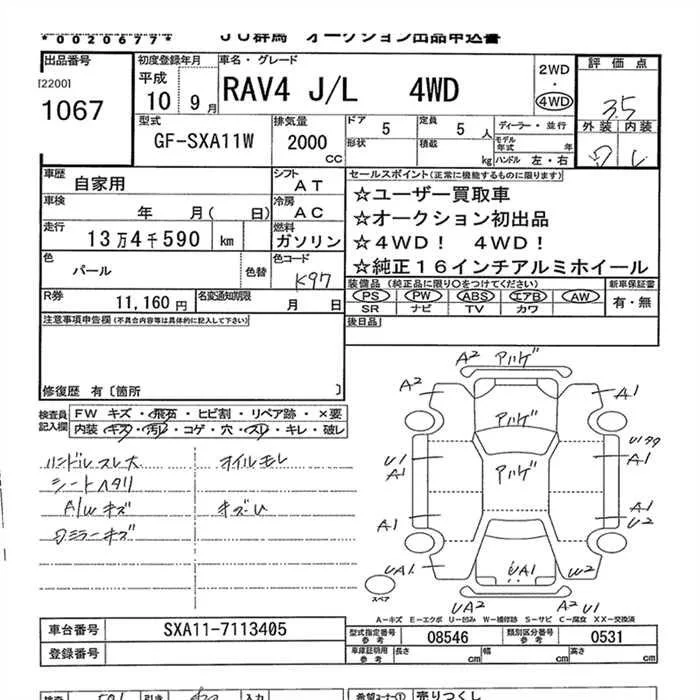 *0020677*
JU群馬 オークション出品申込書
出品番号
[2200]
1067
初度登録年月
平成
10 9月
車名・グレード
RAV4 J/L 4WD
2WD
・
4WD
評価点
3.5
外装 内装
型式
GF-SXA11W
排気量
2000
cc
ドア 5
定員 5 人
形状
積載 kg
ディーラー・並行
モデル年式 年
ハンドル 左・右
車歴
自家用
シフト
AT
車検
年 月( 日)
冷房
AC
走行
13万4千590 km
燃料
ガソリン
色
パール
色替
色コード
K97
R券
11,160円
名変通知期限
月 日
セールスポイント(正常に機能するものに限ります)
☆ユーザー買取車
☆オークション初出品
☆4WD! 4WD!
☆純正16インチアルミホイール
装備品 (純正品に限り○をつけてください)
PS PW ABS エアB AW
SR ナビ TV カワ
新車保証書
有・無
後日品
注意事項申告欄(不具合内容等は具体的に記入して下さい)
修復歴 有〔箇所 〕
検査員記入欄
FW キズ・飛石・ヒビ割・リペア跡・×要
内装・キズ・汚レ・コゲ・穴・スレ・キレ・破レ
ハンドルスレ大 オイルモレ
シートヘタリ
A/Wキズ キズU
ロミラーキズ
A2 アハゲ
A2 A1
アハゲ
U1 A1
アハゲ
A1
A1
A1
U2
UA1 UA1 W2
UA2 A2
スペア
A−キズ E−エクボ U−凹み W−補修跡 S−サビ C−腐食 XX−交換済
車台番号 SXA11-7113405
登録番号
型式指定番号参考 08546
類別区分番号参考 0531
車庫証明用参考 長さ cm 幅 cm 高さ cm
希望コーナー① 売りつくし